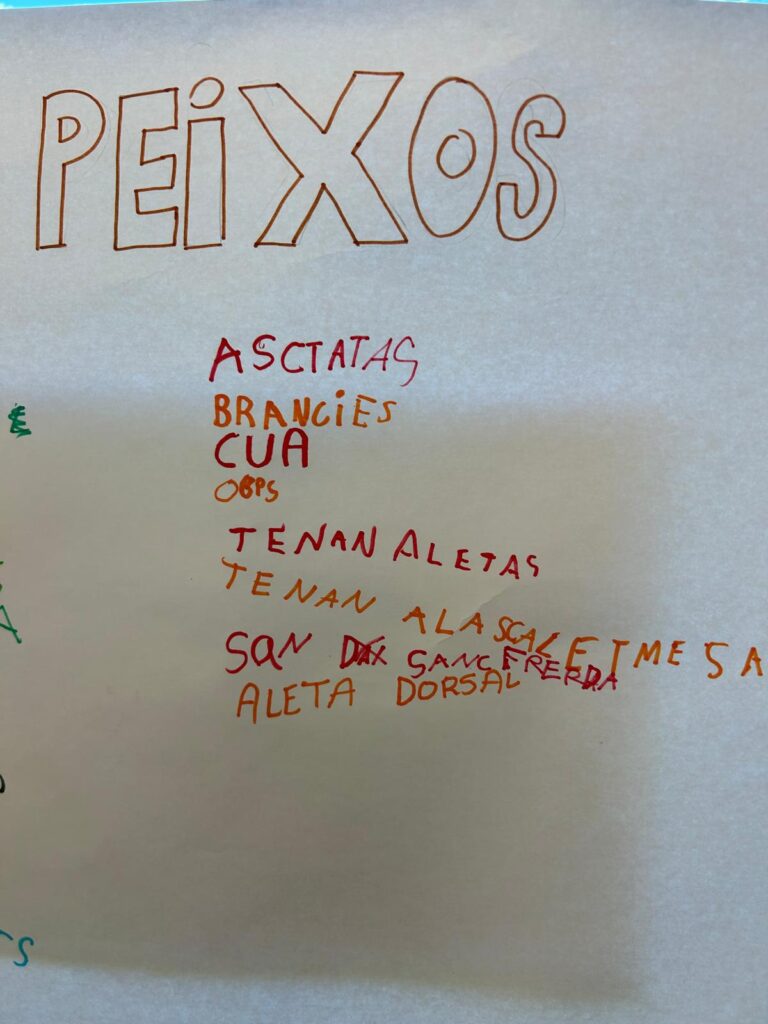 PEiXOS
ASCTATAS
BRANCiES
CUA
OBPS
TENAN ALETAS
TENAN ALASCALETMESA
SAN SANCFRERDA
ALETA DORSAL